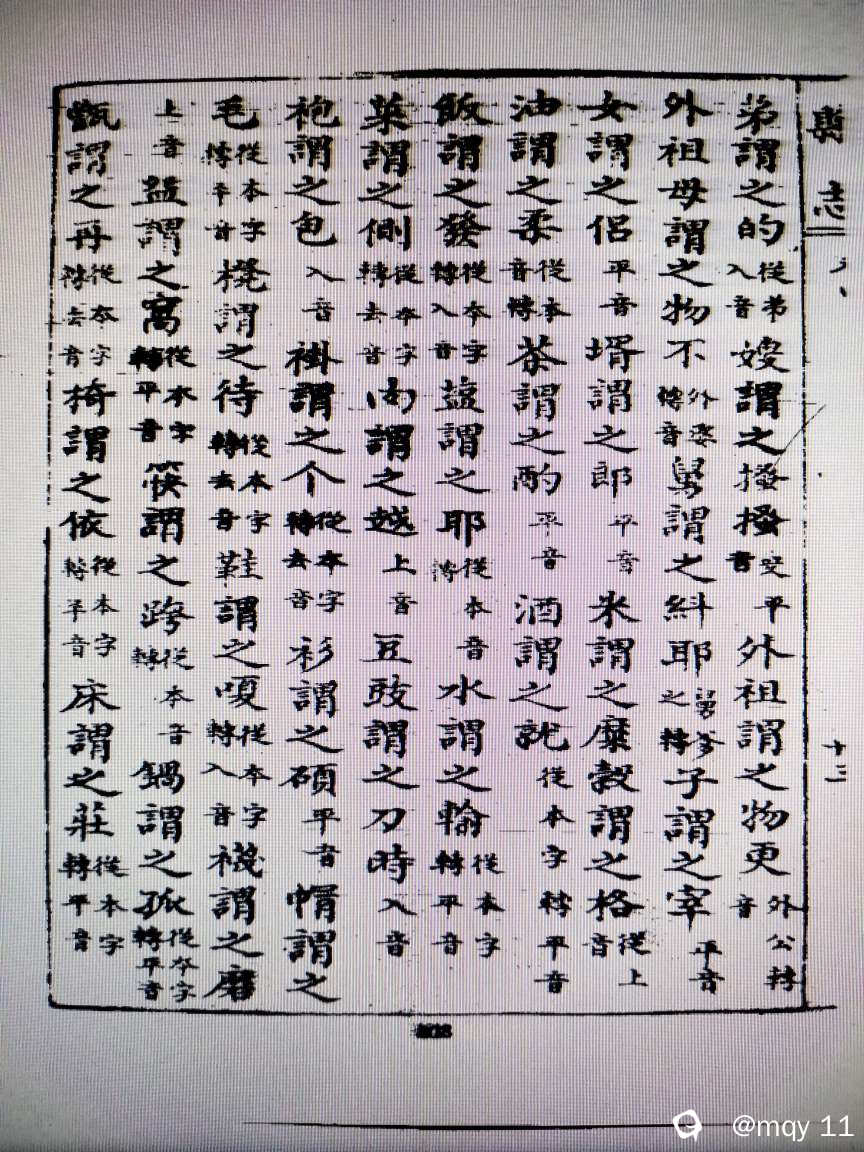 輿志 十三
弟謂之的從弟入音嫂謂之搔搔嫂平音外祖謂之物更外公轉音
外祖母謂之物不外婆轉音舅謂之紏耶舅爹之轉子謂之宰平音
女謂之侶平音壻謂之郎平音米謂之糜穀謂之格從上音
油謂之柔從本音轉茶謂之酌平音酒謂之就從本字轉平音
飯謂之發從本字轉入音鹽謂之耶從本音轉水謂之輸從本字轉平音
菜謂之側從本字轉去音肉謂之越上音豆豉謂之刀時入音
袍謂之色入音褂謂之个從本字轉去音衫謂之碩平音帽謂之
毛從本字轉平音襪謂之待從本字轉去音鞋謂之嗄從本字轉入音機謂之磨
上音盆謂之窩從本字轉平音筷謂之跨從本音轉鍋謂之孤從本字轉平音
甑謂之再從本字轉去音椅謂之依從本字轉平音床謂之莊從本字轉平音
@mqy 11